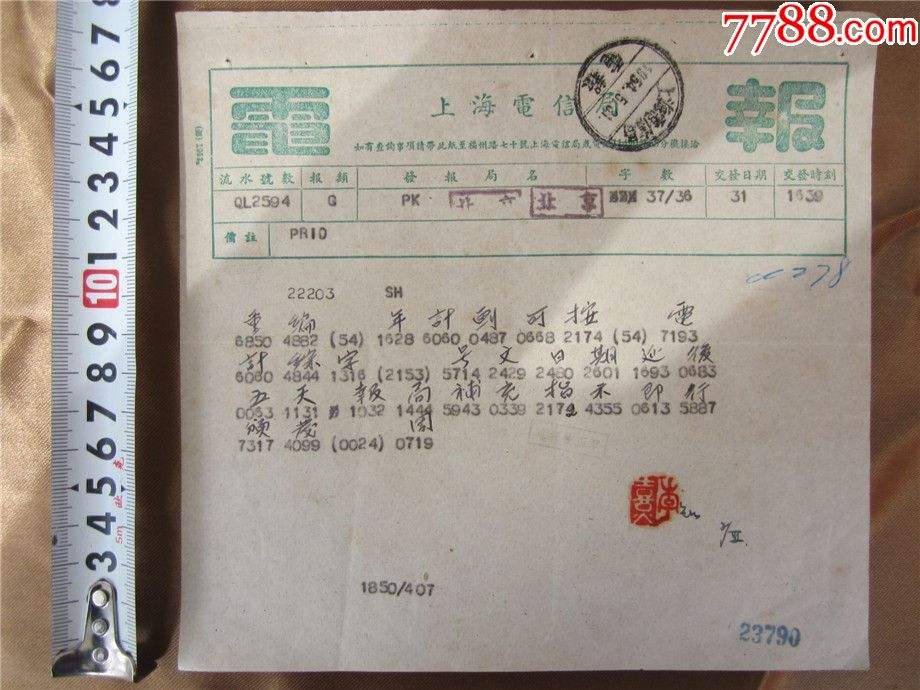 7788.com
電報
上海電信局
如有查詢事項請帶此紙至福州路七十號上海電信局
流水號數 報類 發報局名 字數 交發日期 交發時刻
QL2594 G PK 北京 37/36 31 1639
備註 PRIO
22203 SH
重編 年計劃可按 電
6850 4882 (54) 1628 6060 0487 0668 2174 (54) 7193
計綜字 号文日期延後
6060 4844 1316 (2153) 5714 2429 2480 2601 1693 0683
五天 報局補充指示即行
0063 1131 1032 1444 5943 0339 2172 4355 0613 5887
頒发 周
7317 4099 (0024) 0719
1850/407
23790